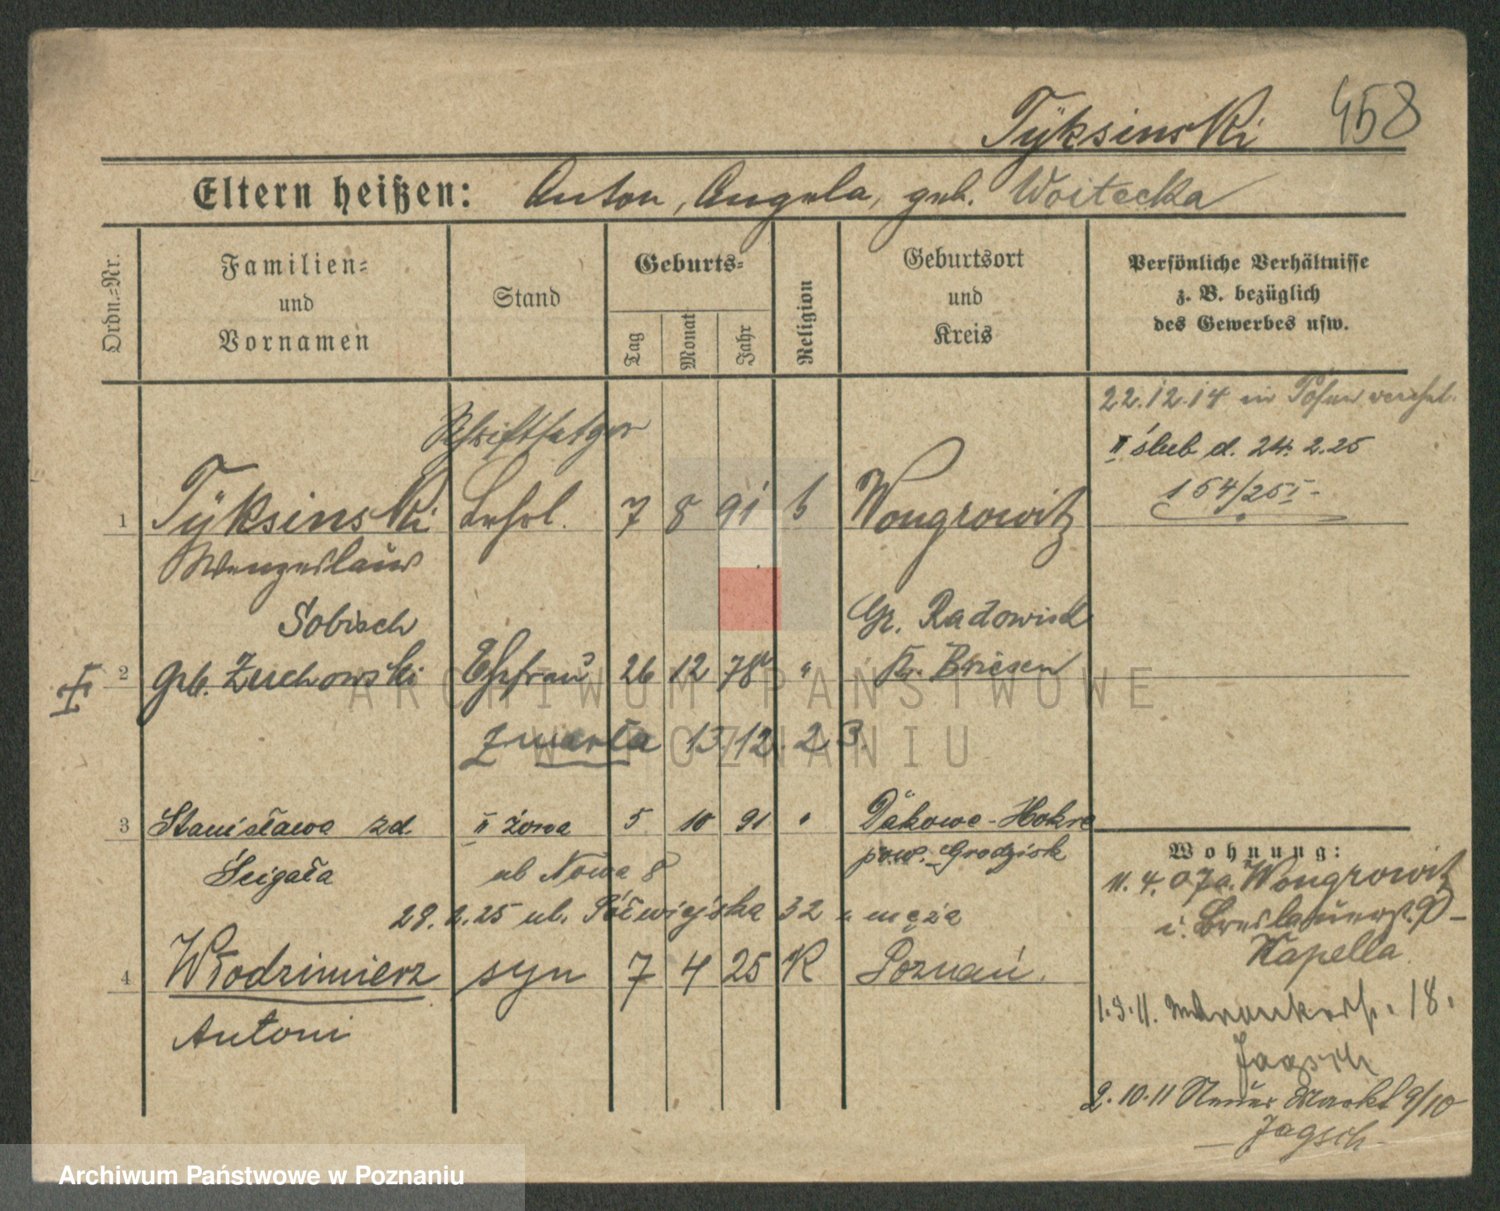 Tÿksinski 458
Eltern heißen: Anton, Angela, geb. Woitecka
Ordn.=Nr.
Familien=
und
Vornamen
Stand
Geburts=
Tag
Monat
Jahr
Religion
Geburtsort
und
Kreis
Persönliche Verhältnisse
z. B. bezüglich
des Gewerbes usw.
22.12.14 in Posen verehel.
II ślub d. 24. 2.25
164/25 I
1 Tÿksinski Lehrl. 7 8 91 Wongrowitz
Wenzeslaus
Sobisch Gr. Radowisk
2 geb. Zuchowski Ehefrau 26 12 78 " Kr. Briesen
zmarła 13/12 23.
3 Stanisława zd II żona 5 10 91 " Dakowo-Mokre
Ścigała ul. Nowa 8 pow. Grodzisk
28.2.25 ul. Półwiejska 32 u męża
4 Włodzimierz syn 7 4 25 K Poznań.
Antoni
Wohnung:
11. 4. 07 a. Wongrowitz
i. Breslauerst. 9 -
Kapella
1.3.11. 18.
Jagsch
2.10.11 Neuer Markt 9/10
- Jagsch -
ARCHIWUM PAŃSTWOWE
W POZNANIU
Archiwum Państwowe w Poznaniu